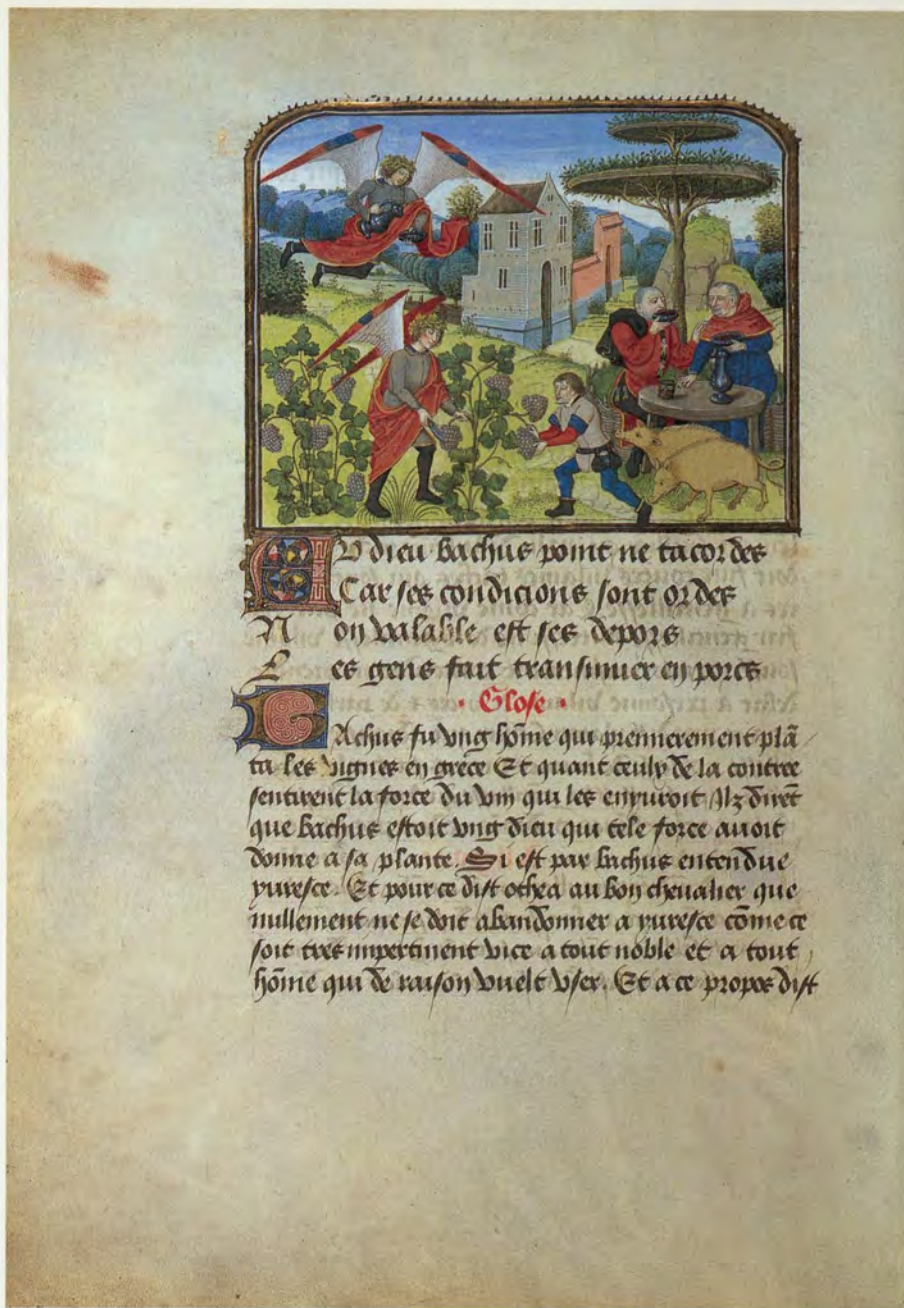 AU dieu bachus point ne tacordes
Car ses condicions sont ordes
Non valable est ses depors
Les gens fait transmuer en porcs
· Glose ·
BAchus fu vng hõme qui premierement plã
ta les vignes en grece Et quant ceulx de la contree
sentirent la force du vin qui les enyuroit Ilz dirẽt
que bachus estoit vng dieu qui tele force auoit
donne a sa plante. Si est par bachus entendue
yuresce. Et pour ce dist othea au bon cheualier que
nullement ne se doit abandonner a yuresce cõme ce
soit tres impertinent vice a tout noble et a tout
hõme qui de raison vuelt vser. Et a ce propos dist